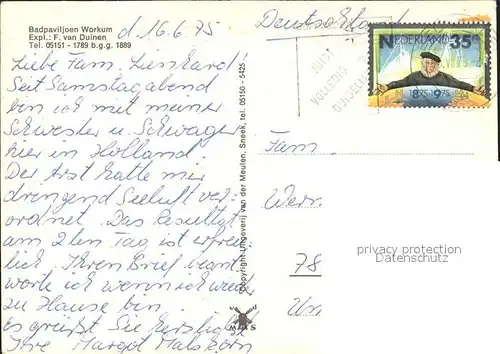 Badpaviljoen Workum
Expl.: F. van Duinen
Tel. 05151 - 1789 b.g.g. 1889
d. 16.6.75
Deutschland
NEDERLAND 35c
1875 1975
JUIST
VOLLEDIG
DUIDELIJK
Liebe Fam. Lienhard!
Seit Samstagabend
bin ich mit meiner
Schwester u. Schwager
hier in Holland.
Der Arzt hatte mir
dringend Seeluft ver-
ordnet. Das Resultat
am 2ten Tag ist erfreu-
lich. Ihren Brief beant-
worte ich wenn ich wieder
zu Hause bin.
es grüßt Sie herzlichst
Ihre Margot
Copyright Uitgeverij van der Meulen, Sneek, tel. 05150 - 5425
v d
MMS
Fam.
Wern
78
privacy protection
oldthing.de